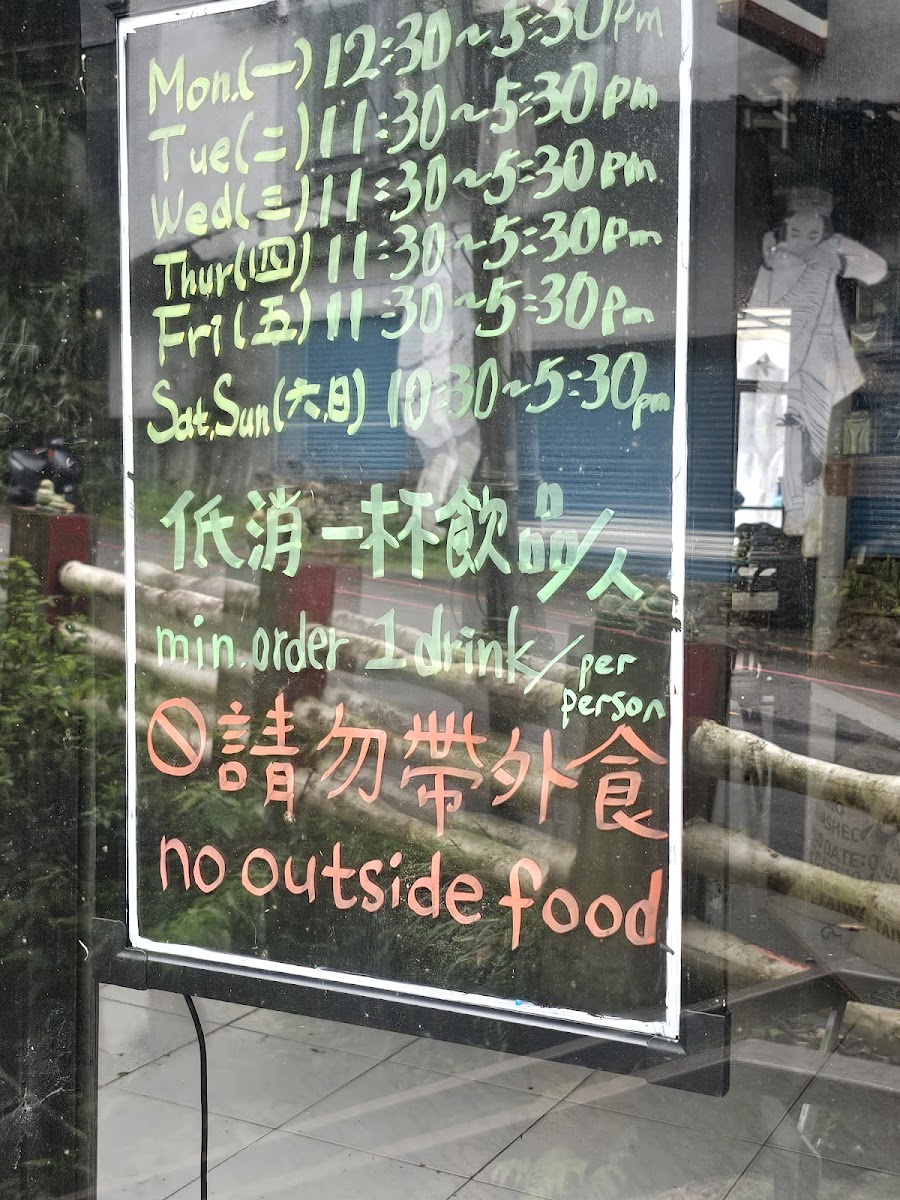 Mon.(一) 12:30~5:30pm
Tue(二) 11:30~5:30pm
Wed(三) 11:30~5:30pm
Thur(四) 11:30~5:30pm
Fri(五) 11:30~5:30pm
Sat,Sun(六,日) 10:30~5:30pm
低消一杯飲品/人
min.order 1 drink/per person
請勿帶外食
no outside food